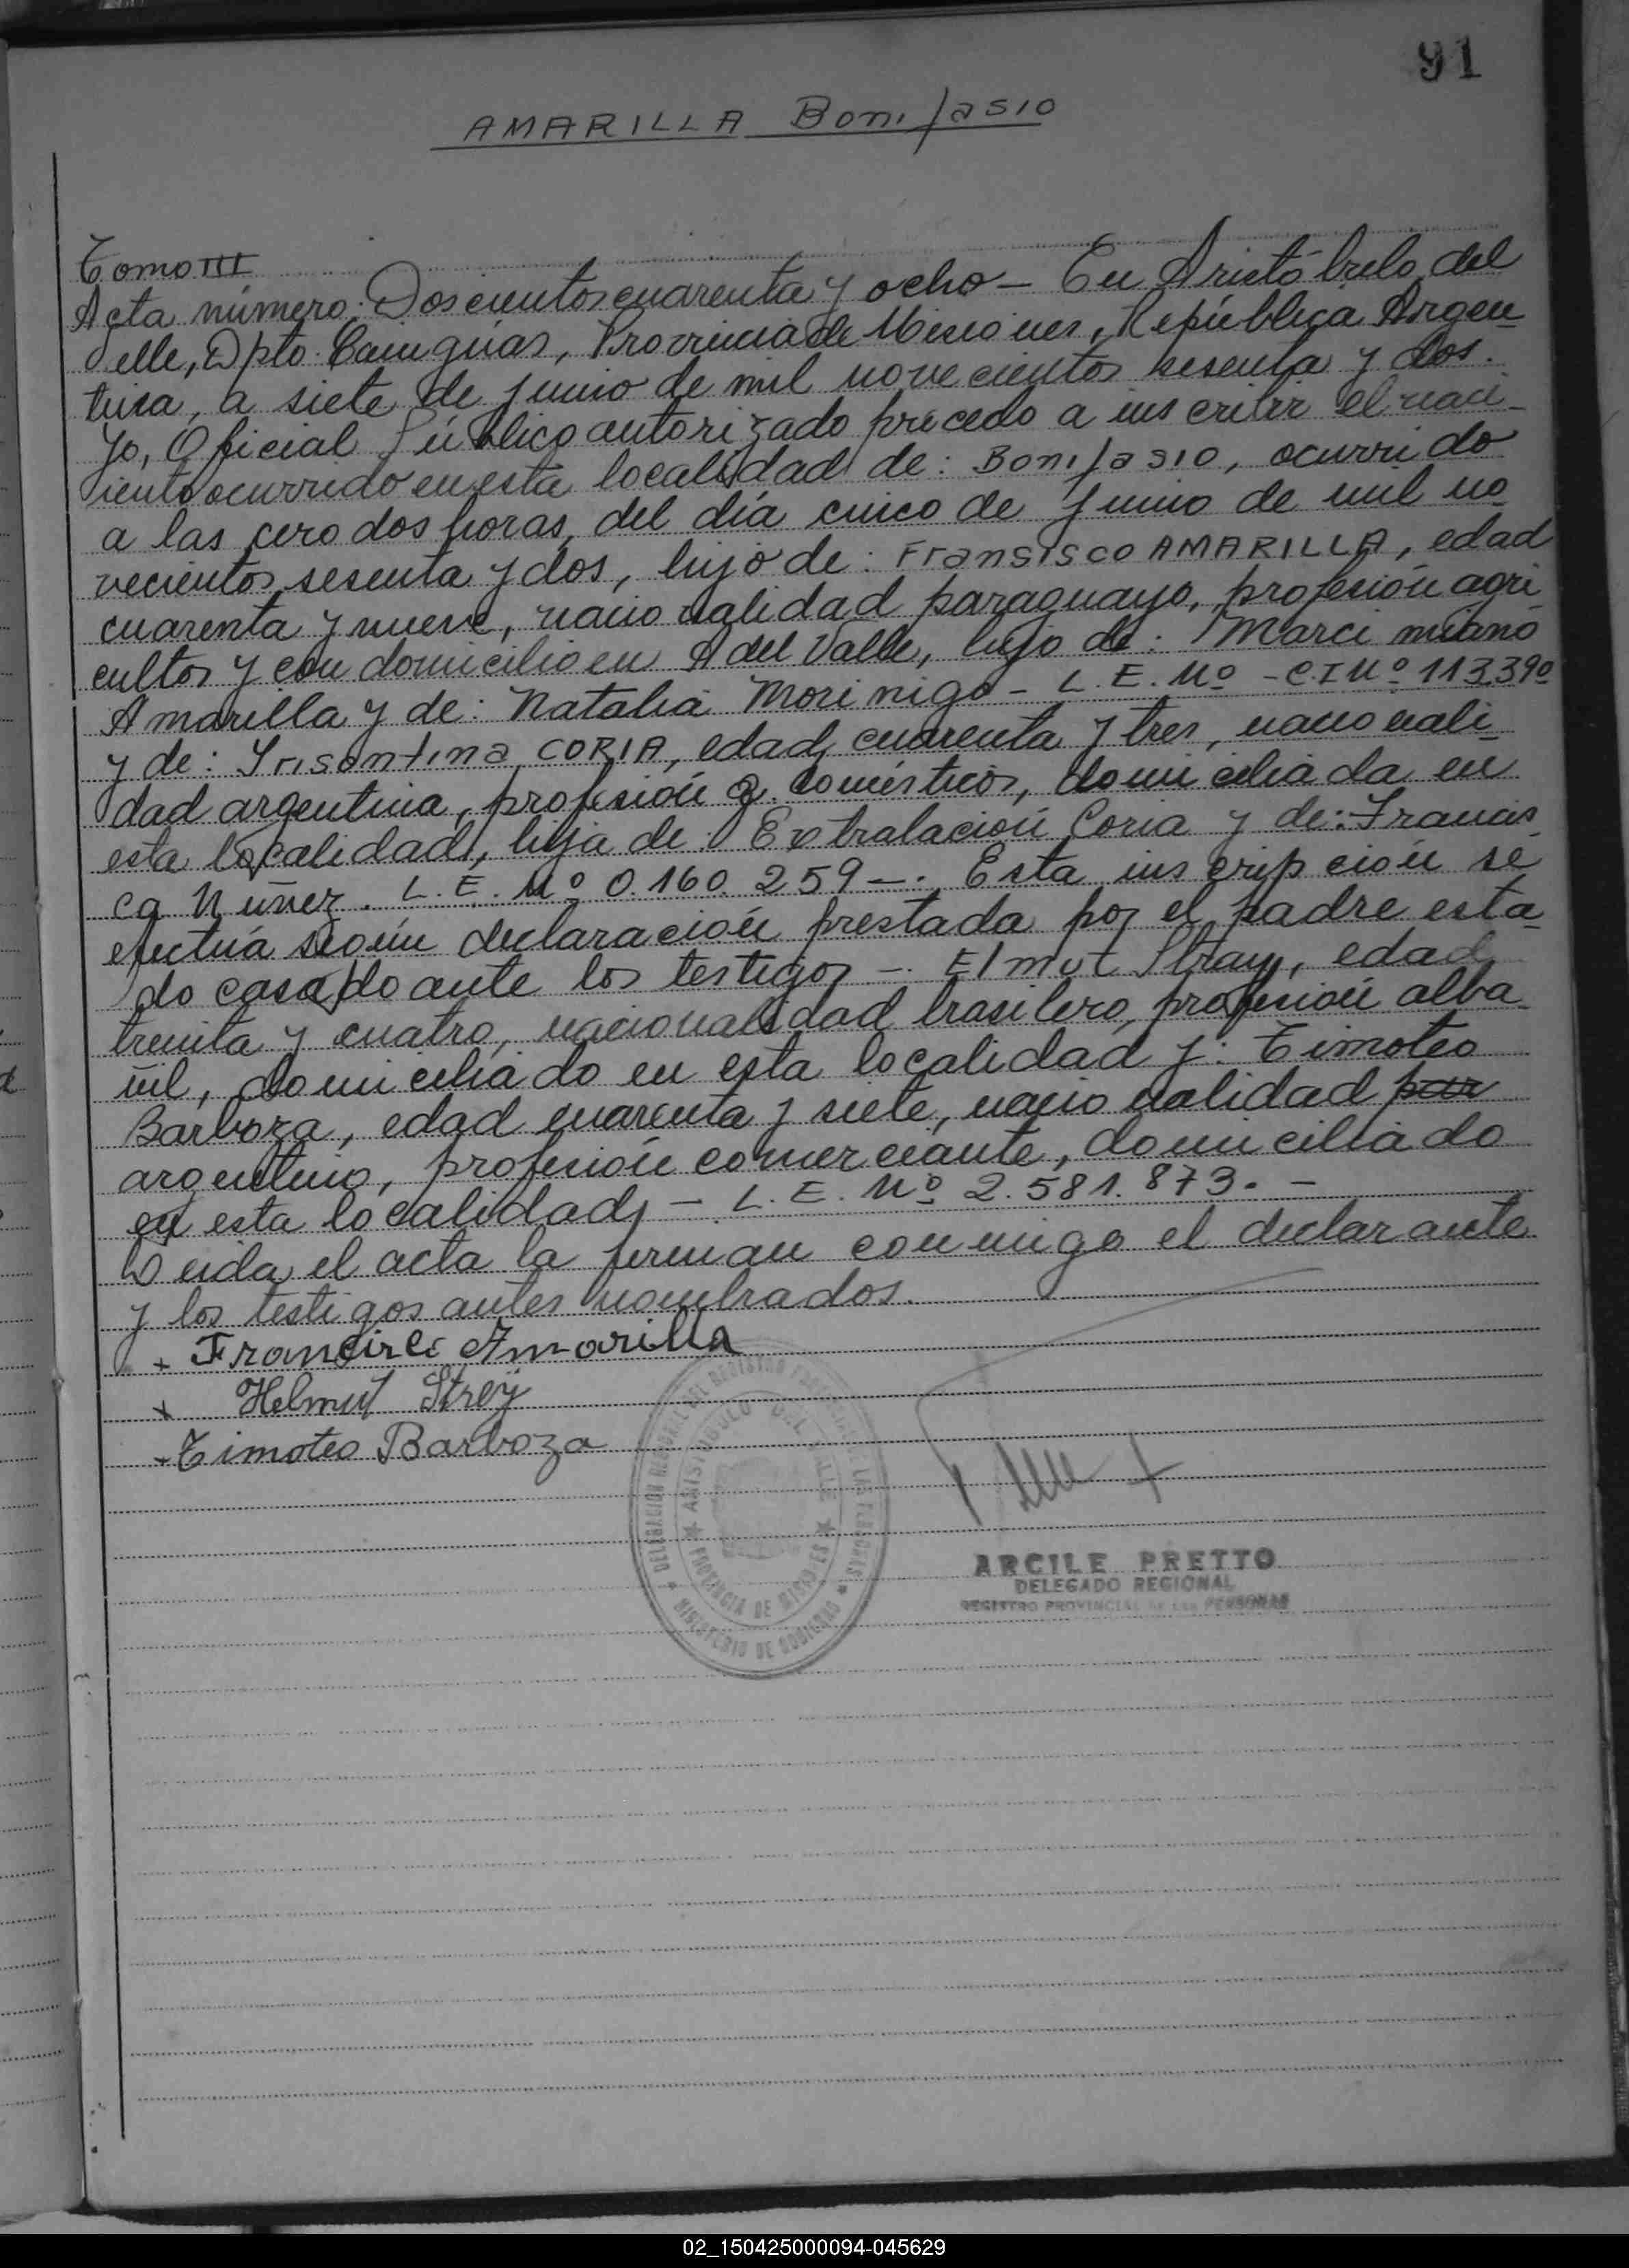 91
AMARILLA Bonifasio
Tomo III
Acta número: Doscientos cuarenta y ocho - En Aristóbulo del
Valle, Dpto. Cainguás, Provincia de Misiones, República Argen
tina, a siete de junio de mil novecientos sesenta y dos.
Yo, Oficial Público autorizado procedo a inscribir el naci-
iento ocurrido en esta localidad de: Bonifasio, ocurrido
a las cero dos horas, del día cinco de junio de mil no
vecientos sesenta y dos, hijo de: Fransisco AMARILLA, edad
cuarenta y nueve, nacionalidad paraguayo, profesión agri
cultor y con domicilio en A del Valle, hijo de: Marcimiano
Amarilla y de: Natalia Morinigo - L.E. Nº - C.I Nº 113.390
y de: CORIA, edad cuarenta y tres, nacionali-
dad argentina, profesión q. domésticos, domiciliada en
esta localidad, hija de: Extralación Coria y de: Francis
ca Núñez. L.E. Nº 0.160.259 -. Esta inscripción se
efectúa según declaración prestada por el padre esta-
do casado ante los testigos -. Elmut Stray, edad
treinta y cuatro, nacionalidad brasilero, profesión alba-
ñil, domiciliado en esta localidad y: Timoteo
Barboza, edad cuarenta y siete, nacionalidad par
argentino, profesión comerciante, domiciliado
en esta localidad, - L.E. Nº 2.581.873. -
Leida el acta la firman conmigo el declarante
y los testigos antes nombrados.
+ Francisco Amarilla
x Helmut Strey
- Timoteo Barboza
DELEGACION REGIONAL DEL REGISTRO PROVINCIAL DE LAS PERSONAS
ARISTOBULO DEL VALLE
PROVINCIA DE MISIONES
MINISTERIO DE GOBIERNO
ARCILE PRETTO
DELEGADO REGIONAL
REGISTRO PROVINCIAL DE LAS PERSONAS
02_150425000094-045629